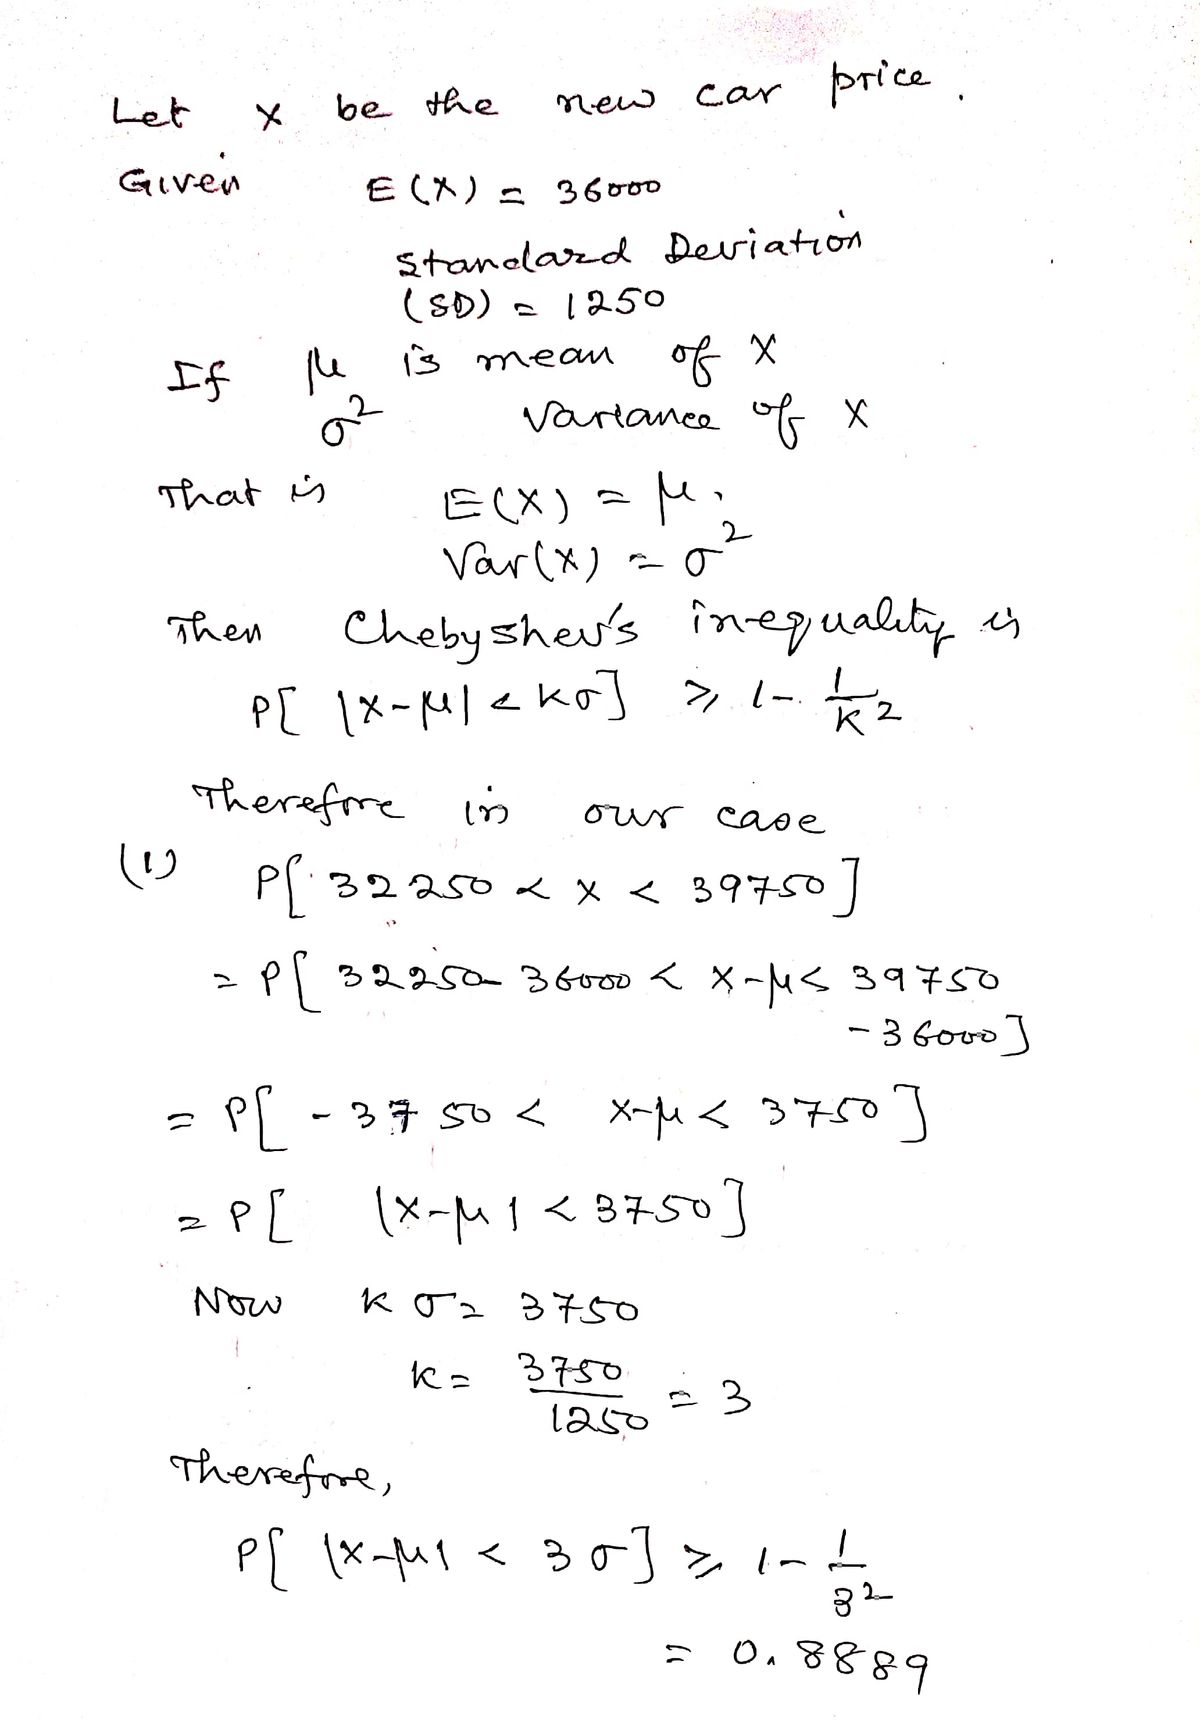 Let X be the new car price.
Given E(X) = 36000
Standard Deviation
(SD) = 1250
If μ is mean of X
σ² Variance of X
That is E(X) = μ,
Var(X) = σ²
Then Chebyshev's inequality is
P[ |X-μ| < kσ] ≥ 1- 1/K²
Therefore in our case
(1) P[ 32250 < X < 39750]
= P[ 32250- 36000 < X-μ < 39750
- 36000]
= P[ - 3750 < X-μ < 3750]
= P[ |X-μ| < 3750]
Now K σ = 3750
K = 3750/1250 = 3
Therefore,
P[ |X-μ| < 3σ] ≥ 1- 1/3²
= 0.8889